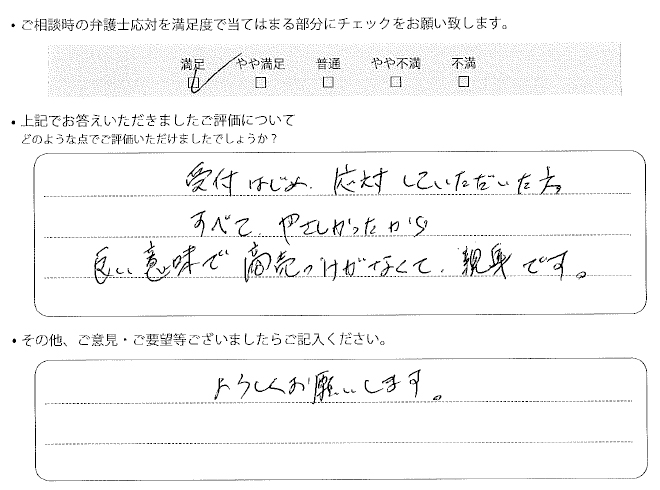 ・ご相談時の弁護士応対を満足度で当てはまる部分にチェックをお願い致します。
満足 やや満足 普通 やや不満 不満
☑ □ □ □ □
・上記でお答えいただきましたご評価について
どのような点でご評価いただけましたでしょうか？
受付はじめ、応対していただいた方、
すべて、やさしかったから
良い意味で商売っけがなくて、親身です。
・その他、ご意見・ご要望等ございましたらご記入ください。
よろしくお願いします。